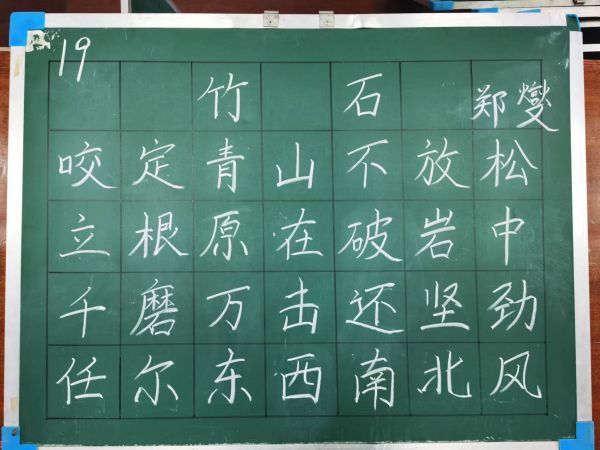 19
竹石 郑燮
咬定青山不放松
立根原在破岩中
千磨万击还坚劲
任尔东西南北风